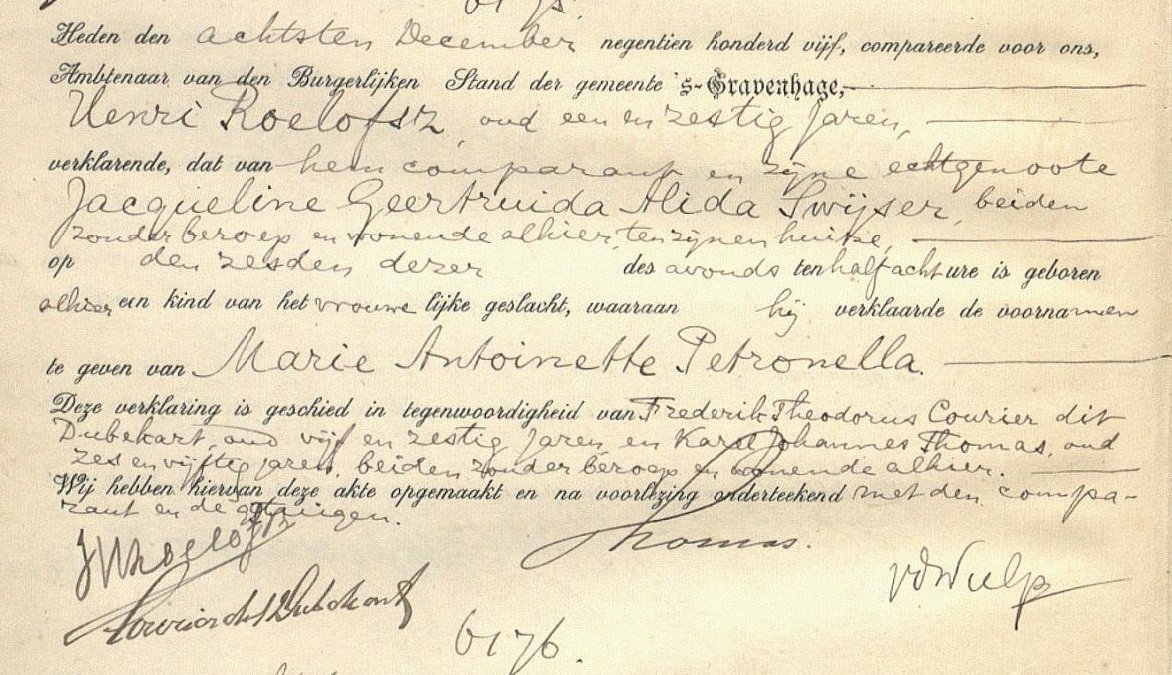 6175.
Heden den achtsten December negentien honderd vijf, compareerde voor ons,
Ambtenaar van den Burgerlijken Stand der gemeente 's-Gravenhage,
Henri Roelofsz, oud een en zestig jaren,
verklarende, dat van hem comparant en zijne echtgenoote
Jacqueline Geertruida Alida Swijser, beiden
zonder beroep en wonende alhier, ten zijnen huize,
op den zesden dezer des avonds ten half acht ure is geboren
alhier een kind van het vrouwelijke geslacht, waaraan hij verklaarde de voornamen
te geven van Marie Antoinette Petronella.
Deze verklaring is geschied in tegenwoordigheid van Frederik Theodorus Courier dit
Dubekart, oud vijf en zestig jaren, en Karel Johannes Thomas, oud
zes en vijftig jaren, beiden zonder beroep en wonende alhier.
Wij hebben hiervan deze akte opgemaakt en na voorlezing onderteekend met den compa-
rant en de getuigen.
HRoelofsz
Thomas.
vdWulp
Courier dit Dubekart
6176.